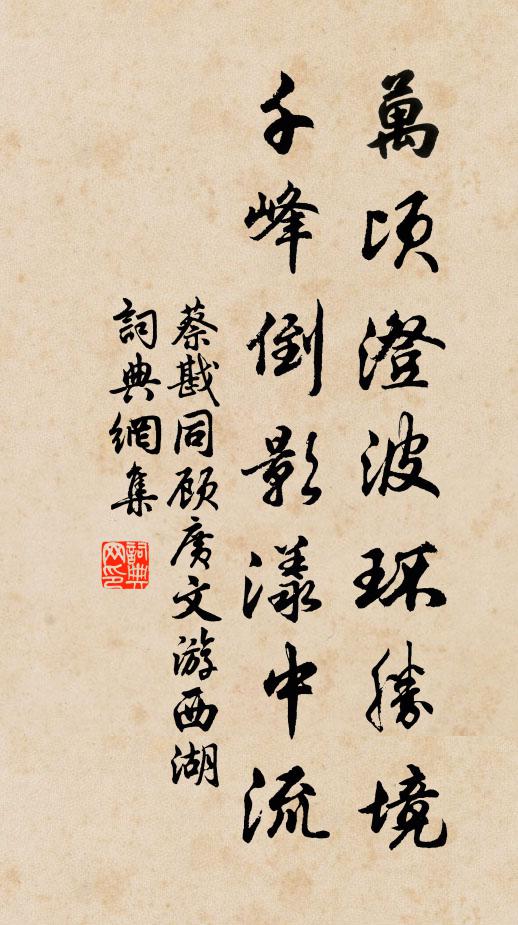 萬頃澄波环勝境
千峰倒影漾中流
蔡戡同顾廣文游西湖
詞典網集
詞典
网印